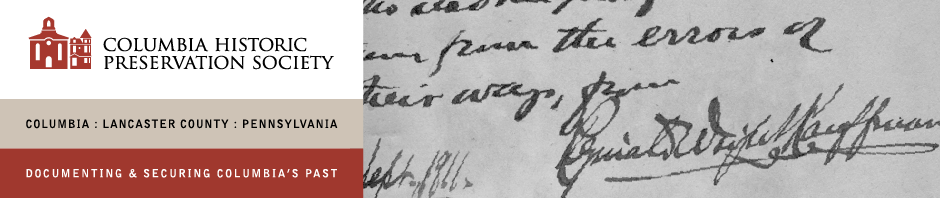 COLUMBIA HISTORIC
PRESERVATION SOCIETY
COLUMBIA : LANCASTER COUNTY : PENNSYLVANIA
DOCUMENTING & SECURING COLUMBIA'S PAST
from the errors of
their ways, from
Reginald Wright Kauffman
Sept. 1911.